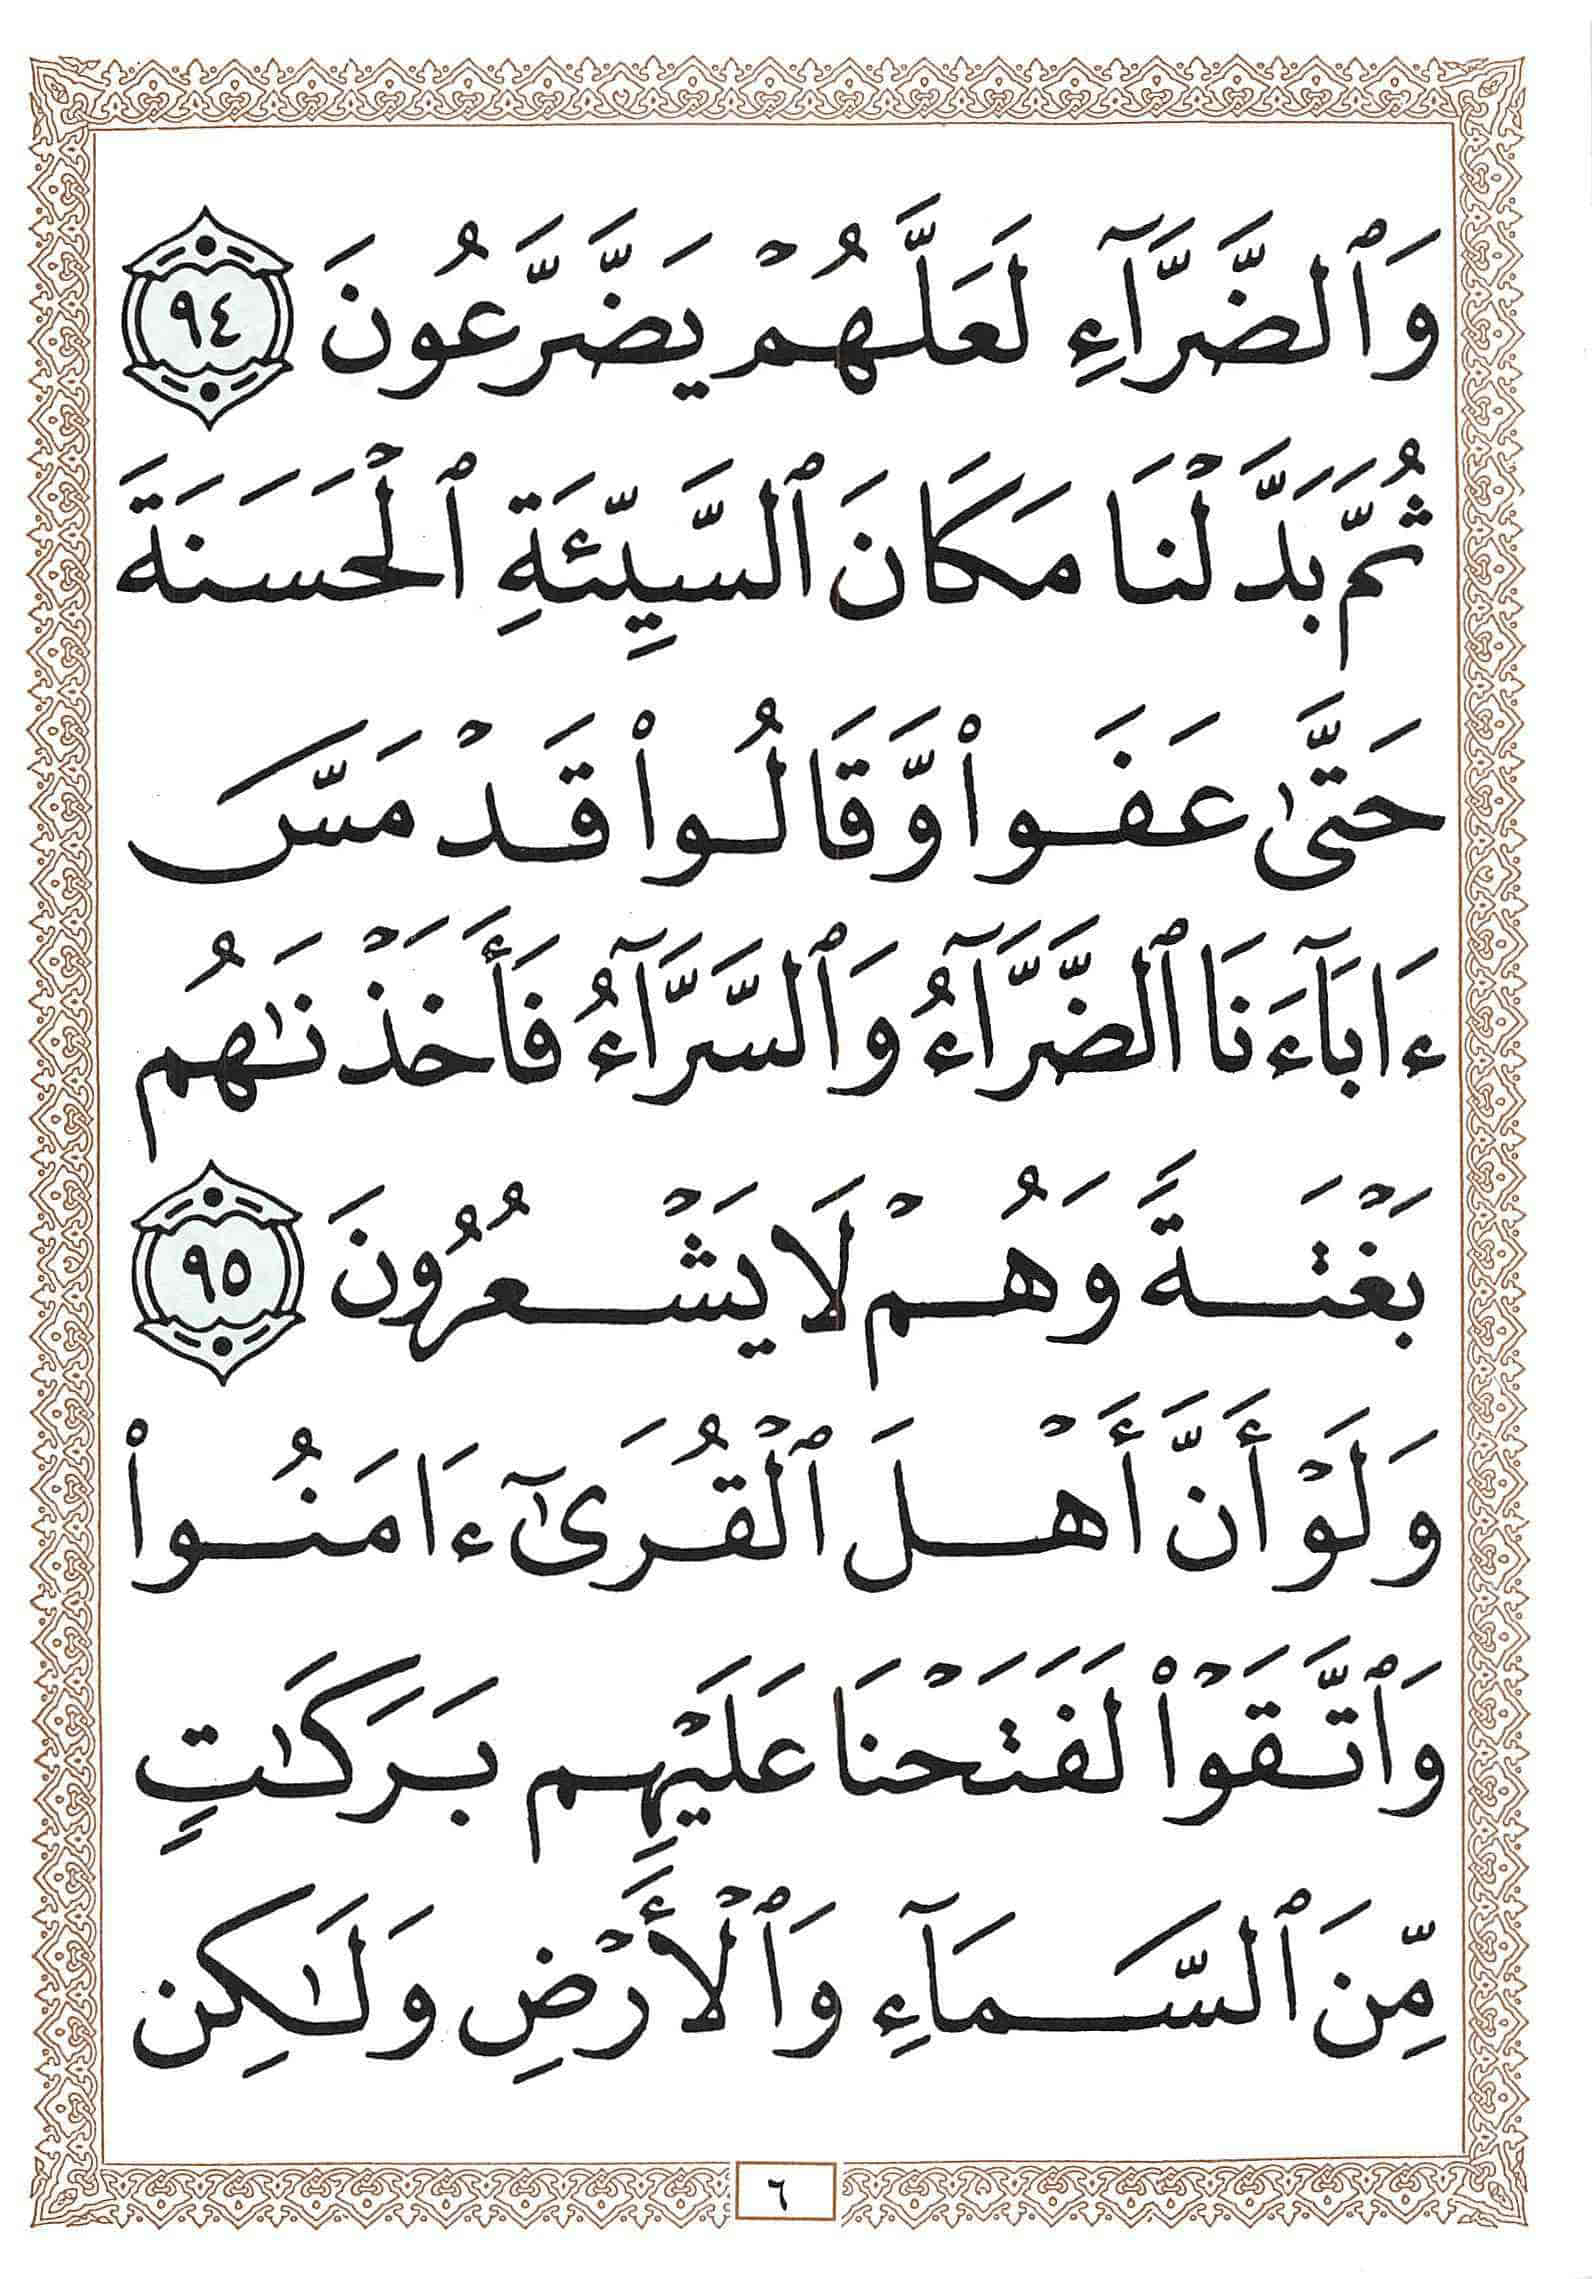 وَٱلضَّرَّآءِ لَعَلَّهُمْ يَضَّرَّعُونَ ٩٤
ثُمَّ بَدَّلْنَا مَكَانَ ٱلسَّيِّئَةِ ٱلْحَسَنَةَ
حَتَّىٰ عَفَوا۟ وَّقَالُوا۟ قَدْ مَسَّ
ءَابَآءَنَا ٱلضَّرَّآءُ وَٱلسَّرَّآءُ فَأَخَذْنَٰهُم
بَغْتَةً وَهُمْ لَا يَشْعُرُونَ ٩٥
وَلَوْ أَنَّ أَهْلَ ٱلْقُرَىٰٓ ءَامَنُوا۟
وَٱتَّقَوْا۟ لَفَتَحْنَا عَلَيْهِم بَرَكَٰتٍ
مِّنَ ٱلسَّمَآءِ وَٱلْأَرْضِ وَلَٰكِن
٦